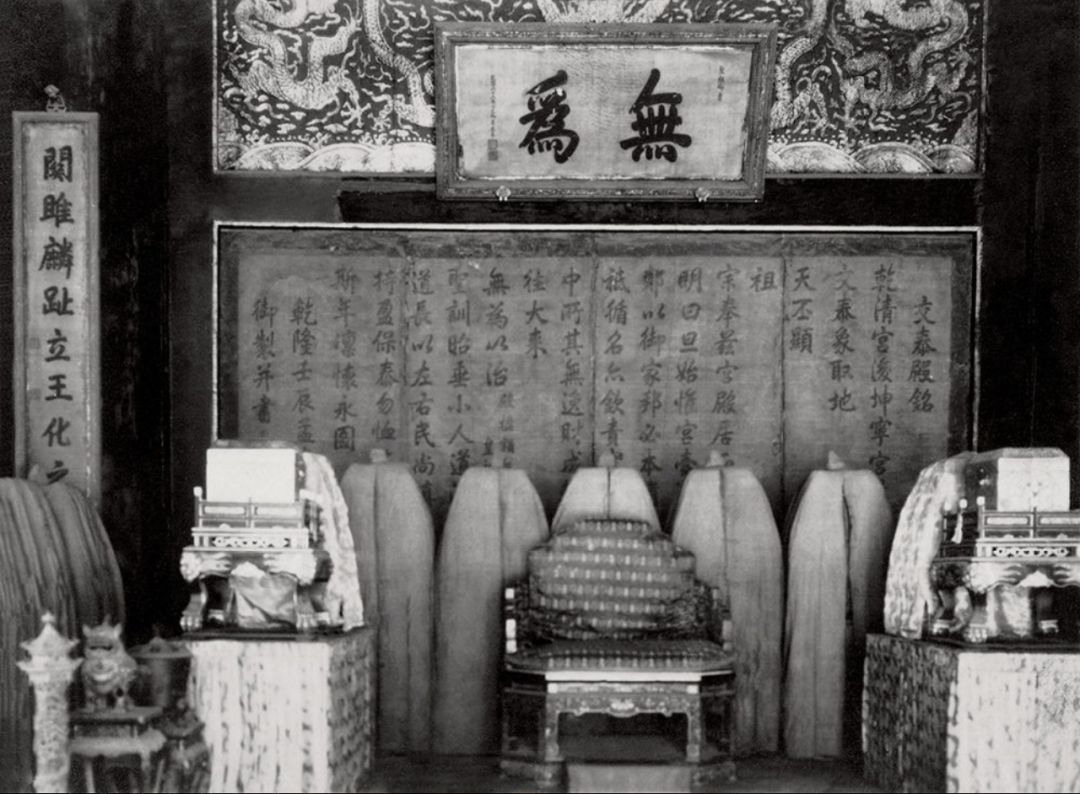 無爲
交泰殿銘
乾清宮後坤寧宮
交泰象取地
天丕顯
祖
宗奉若宮殿居
明曰旦始惟宮壼
鄉以御家邦必本
祗循名念欽責
中所其無逸財成
往大來
無為以治
聖訓貽垂小人道
道長以左右民尚
持盈保泰勿恤
斯年懍懷永圖
乾隆壬辰孟
御製并書
關雎麟趾立王化之